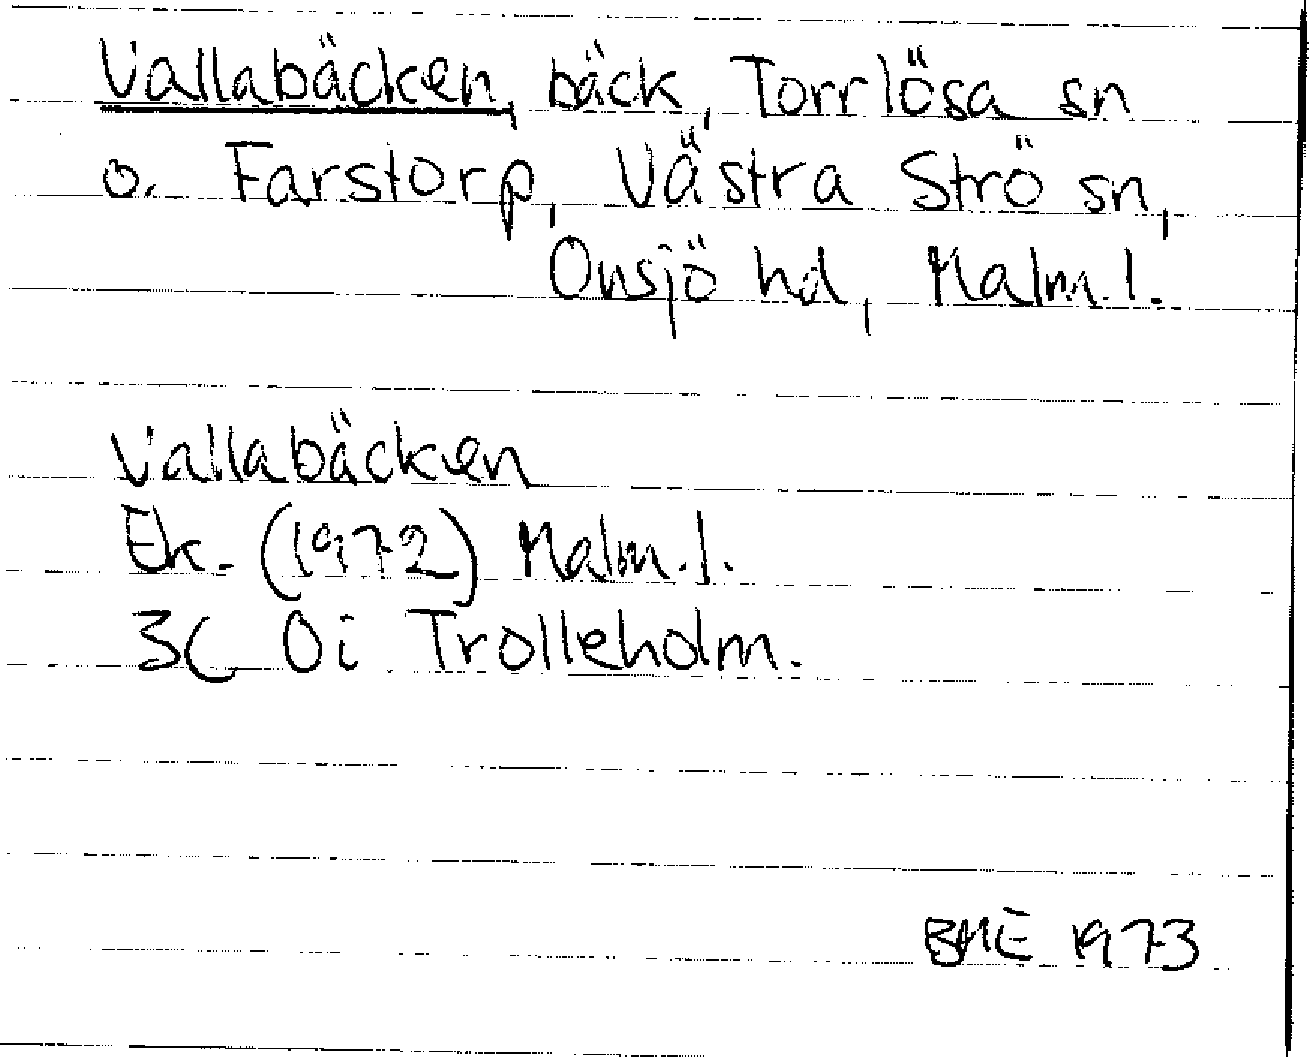 Vallabäcken, bäck, Torrlösa sn
o. Farstorp, Västra Strö sn,
Onsjö hd, Malm.l.
Vallabäcken
Ek. (1972) Malm.l.
3C 0i Trolleholm.
BME 1973